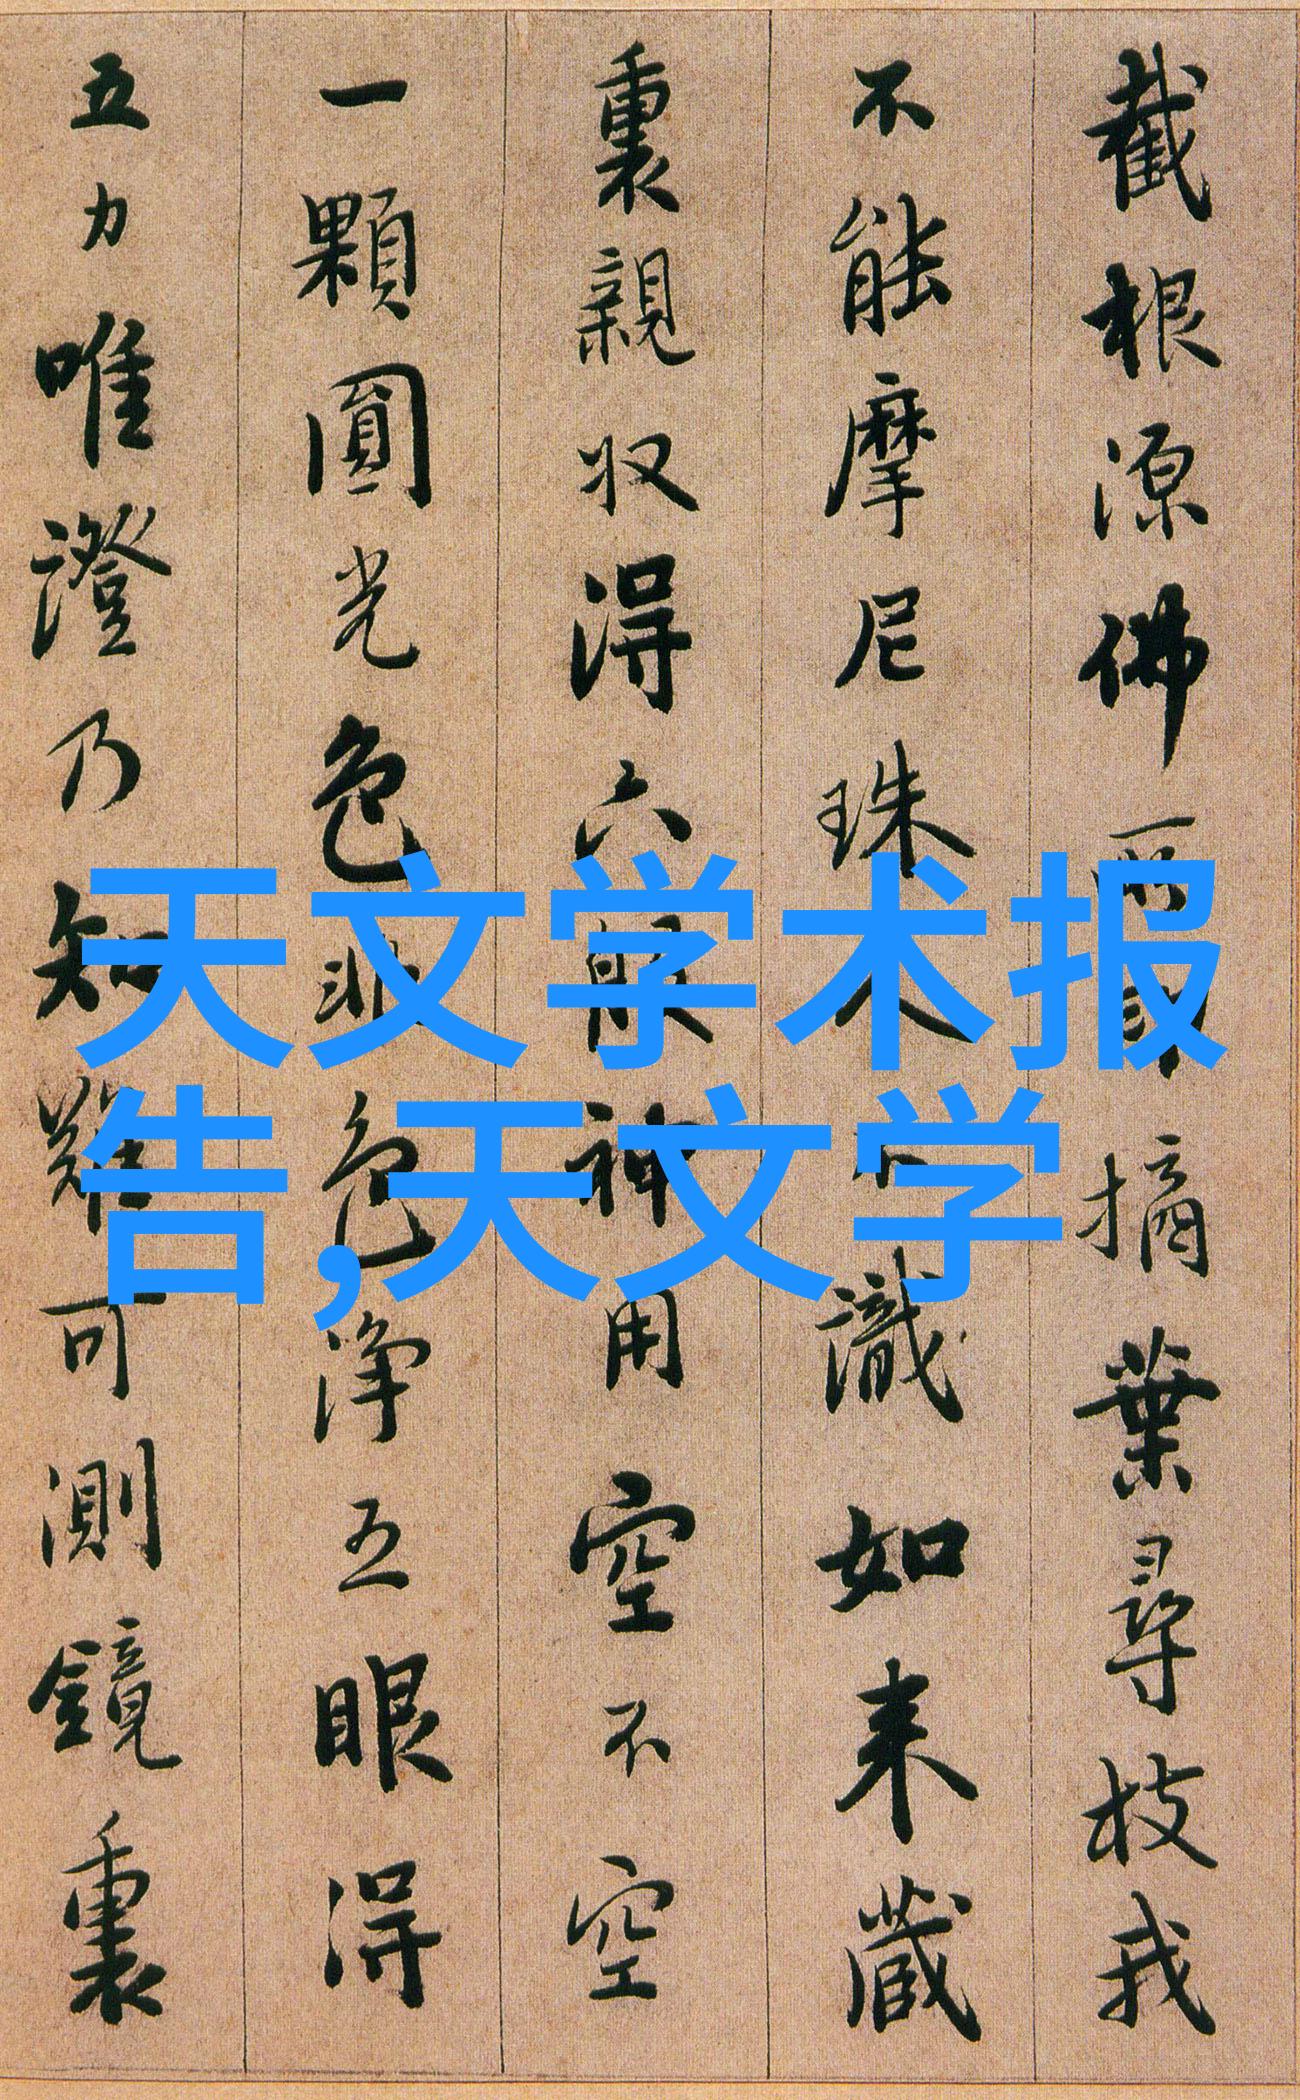 截根源佛所印摘葉尋枝我
不能摩尼珠人不識如来藏
裏親収得六般神用空不空
一顆圓光色非色净五眼得
五力唯證乃知難可測鏡裏
天文学术报
告,天文学